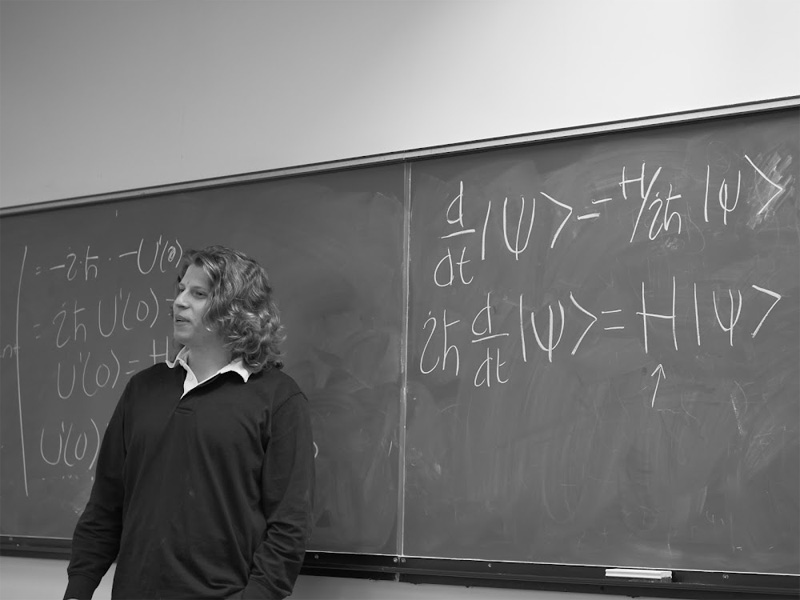 = -iħ · -U'(0)
= iħ U'(0)
U'(0) = H
U'(0)
d/dt |ψ> = -H/iħ |ψ>
iħ d/dt |ψ> = H|ψ>
↑